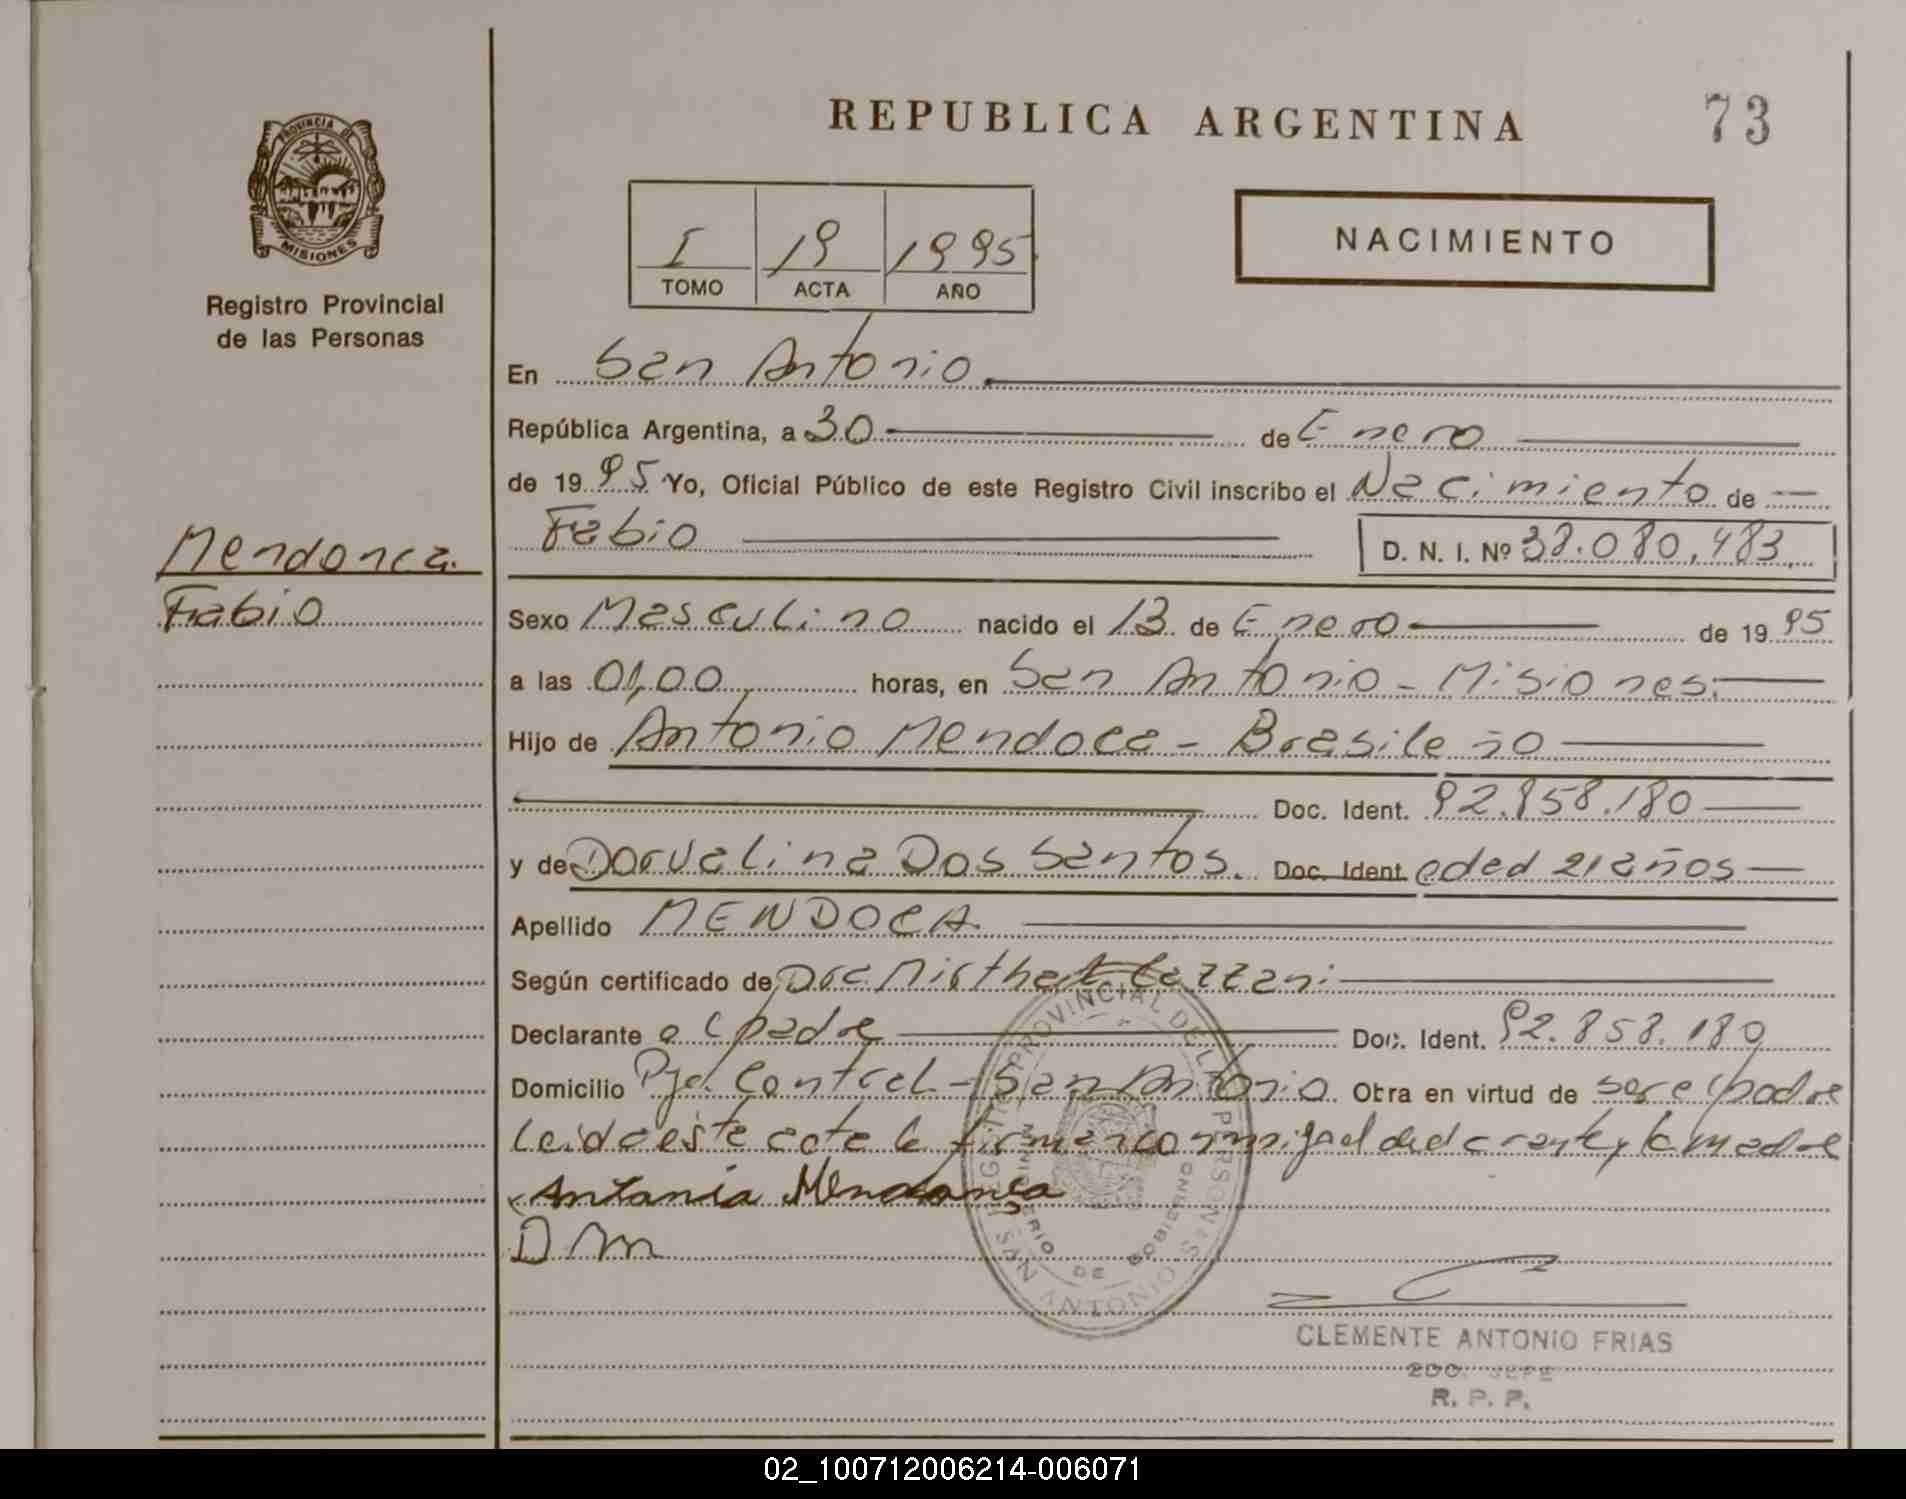 REPUBLICA ARGENTINA
73
PROVINCIA DE
MISIONES
Registro Provincial
de las Personas
I 19 1995
TOMO ACTA AÑO
NACIMIENTO
En San Antonio
República Argentina, a 30 de Enero
de 1995 Yo, Oficial Público de este Registro Civil inscribo el Nacimiento de
Fabio D. N. I. Nº 38.080.483
Mendonca.
Fabio
Sexo Masculino nacido el 13 de Enero de 1995
a las 01,00 horas, en San Antonio - Misiones.
Hijo de Antonio Mendoca - Brasileño
Doc. Ident. 92.858.180
y de Dorvalina Dos Santos. Doc. Ident. edad 21 años
Apellido MENDOCA.
Según certificado de Dra. Mirtha Cazzani
Declarante el padre Doc. Ident. 92.858.180
Domicilio Pje. Contrel - San Antonio Obra en virtud de ser el padre
Leida este acta la firman conmigo el declarante y la madre
Antonio Mendonça
D m
REGISTRO PROVINCIAL DE LAS PERSONAS
MINISTERIO DE GOBIERNO
SAN ANTONIO
CLEMENTE ANTONIO FRIAS
2DO. JEFE
R. P. P.
02_100712006214-006071